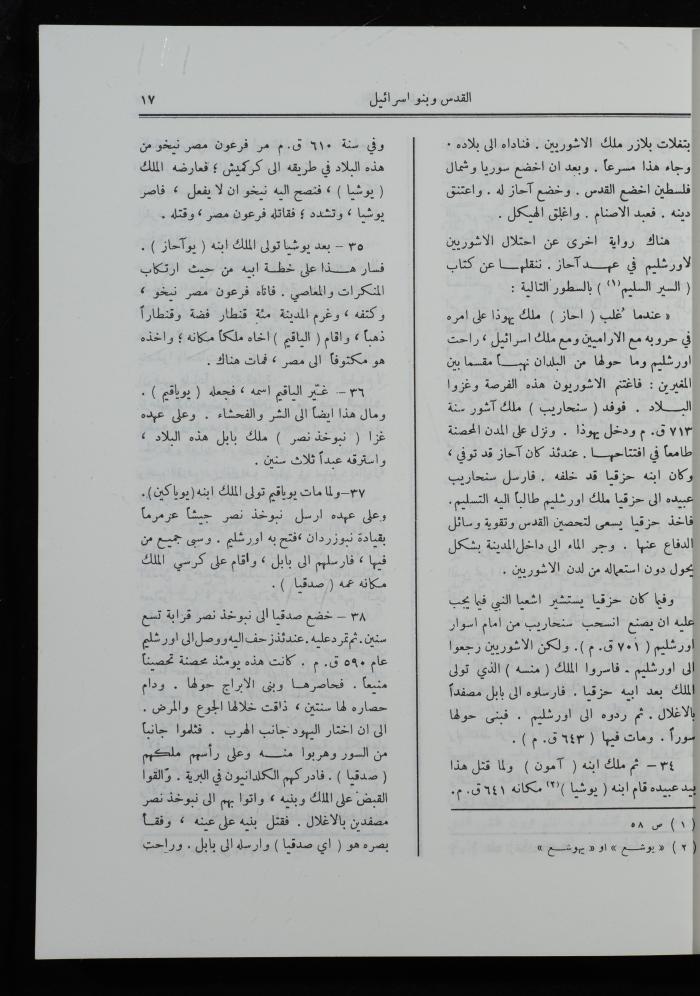 القدس وبنو اسرائيل
١٧
بتفلات بلازر ملك الاشوريين . فناداه الى بلاده .
وجاء هذا مسرعاً . وبعد ان اخضع سوريا وشمال
فلسطين اخضع القدس . وخضع آحاز له . واعتنق
دينه . فعبد الاصنام . واغلق الهيكل .
هناك رواية اخرى عن احتلال الاشوريين
لاورشليم في عهد آحاز . ننقلها عن كتاب
( السير السليم(١) ) بالسطور التالية :
« عندما غُلب ( احاز ) ملك يهوذا على امره
في حروبه مع الاراميين ومع ملك اسرائيل ، راحت
اورشليم وما حولها من البلدان نهباً مقسما بين
المغيرين : فاغتنم الاشوريون هذه الفرصة وغزوا
البلاد . فوفد ( سنحاريب ) ملك آشور سنة
٧١٣ ق.م ودخل يهوذا . ونزل على المدن المحصنة
طامعاً في افتتاحها . عندئذ كان آحاز قد توفي ،
وكان ابنه حزقيا قد خلفه . فارسل سنحاريب
عبيده الى حزقيا ملك اورشليم طالباً اليه التسليم .
فاخذ حزقيا يسعى لتحصين القدس وتقوية وسائل
الدفاع عنها . وجر الماء الى داخل المدينة بشكل
يحول دون استعماله من لدن الاشوريين .
وفيما كان حزقيا يستشير اشعيا النبي فيما يجب
عليه ان يصنع انسحب سنحاريب من امام اسوار
اورشليم ( ٧٠١ ق.م ) . ولكن الاشوريين رجعوا
الى اورشليم . فاسروا الملك ( منسه ) الذي تولى
الملك بعد ابيه حزقيا . فارسلوه الى بابل مصفداً
بالاغلال . ثم ردوه الى اورشليم . فبنى حولها
سوراً . ومات فيها ( ٦٤٣ ق.م ) .
٣٤ – ثم ملك ابنه ( آمون ) ولما قتل هذا
بيد عبيده قام ابنه ( يوشيا )(٢) مكانه ٦٤١ ق.م.
( ١ ) ص ٥٨
( ٢ ) « يوشع » او « يهوشع »
وفي سنة ٦١٠ ق.م مر فرعون مصر نيخو من
هذه البلاد في طريقه الى كركميش ؛ فعارضه الملك
( يوشيا ) ، فنصح اليه نيخو ان لا يفعل ، فاصر
يوشيا ، وتشدد ؛ فقاتله فرعون مصر ، وقتله .
٣٥ – بعد يوشيا تولى الملك ابنه ( يوآحاز ) .
فسار هذا على خطة ابيه من حيث ارتكاب
المنكرات والمعاصي . فاتاه فرعون مصر نيخو ،
وكتفه ، وغرم المدينة مئة قنطار فضة وقنطاراً
ذهباً ، واقام ( الياقيم ) اخاه ملكاً مكانه ؛ واخذه
هو مكتوفاً الى مصر ، فمات هناك .
٣٦ – غيّر الياقيم اسمه ، فجعله ( يوياقيم ) .
ومال هذا ايضاً الى الشر والفحشاء . وعلى عهده
غزا ( نبوخذ نصر ) ملك بابل هذه البلاد ،
واسترقه عبداً ثلاث سنين .
٣٧–ولما مات يوياقيم تولى الملك ابنه (يوياكين).
وعلى عهده ارسل نبوخذ نصر جيشاً عرمرماً
بقيادة نبوزردان ،فتح به اورشليم . وسبى جميع من
فيها ، فارسلهم الى بابل ، وأقام على كرسي الملك
مكانه عمه ( صدقيا ) .
٣٨ – خضع صدقيا الى نبوخذ نصر قرابة تسع
سنين. ثم تمرد عليه . عندئذ زحف اليه ووصل الى اورشليم
عام ٥٩٠ ق.م . كانت هذه يومئذ محصنة تحصيناً
منيعاً . فحاصرها وبنى الابراج حولها . ودام
حصاره لها سنتين ، ذاقت خلالها الجوع والمرض .
الى ان اختار اليهود جانب الهرب . فثلموا جانباً
من السور وهربوا منه وعلى رأسهم ملكهم
( صدقيا ) . فادركهم الكلدانيون في البرية . وألقوا
القبض على الملك وبنيه ، واتوا بهم الى نبوخذ نصر
مصفدين بالاغلال . فقتل بنيه على عينه ، وفقأ
بصره هو ( اي صدقيا ) وارسله الى بابل . وراحت